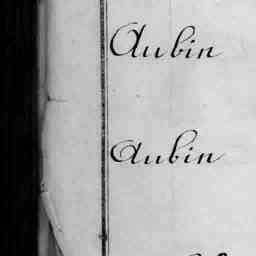 Aubin
Aubin